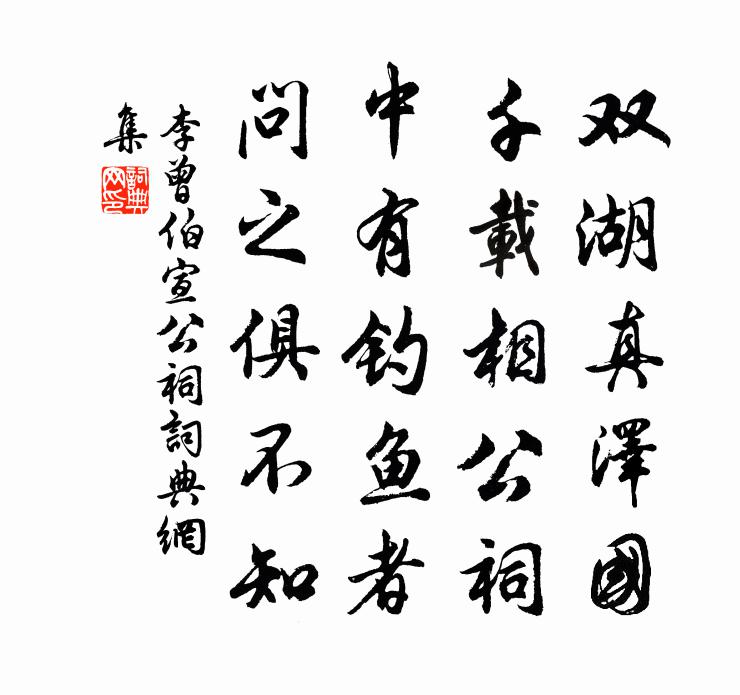 双湖真澤國
千載相公祠
中有钓鱼者
问之俱不知
李曾伯宣公祠詞典網
集
詞典
网印